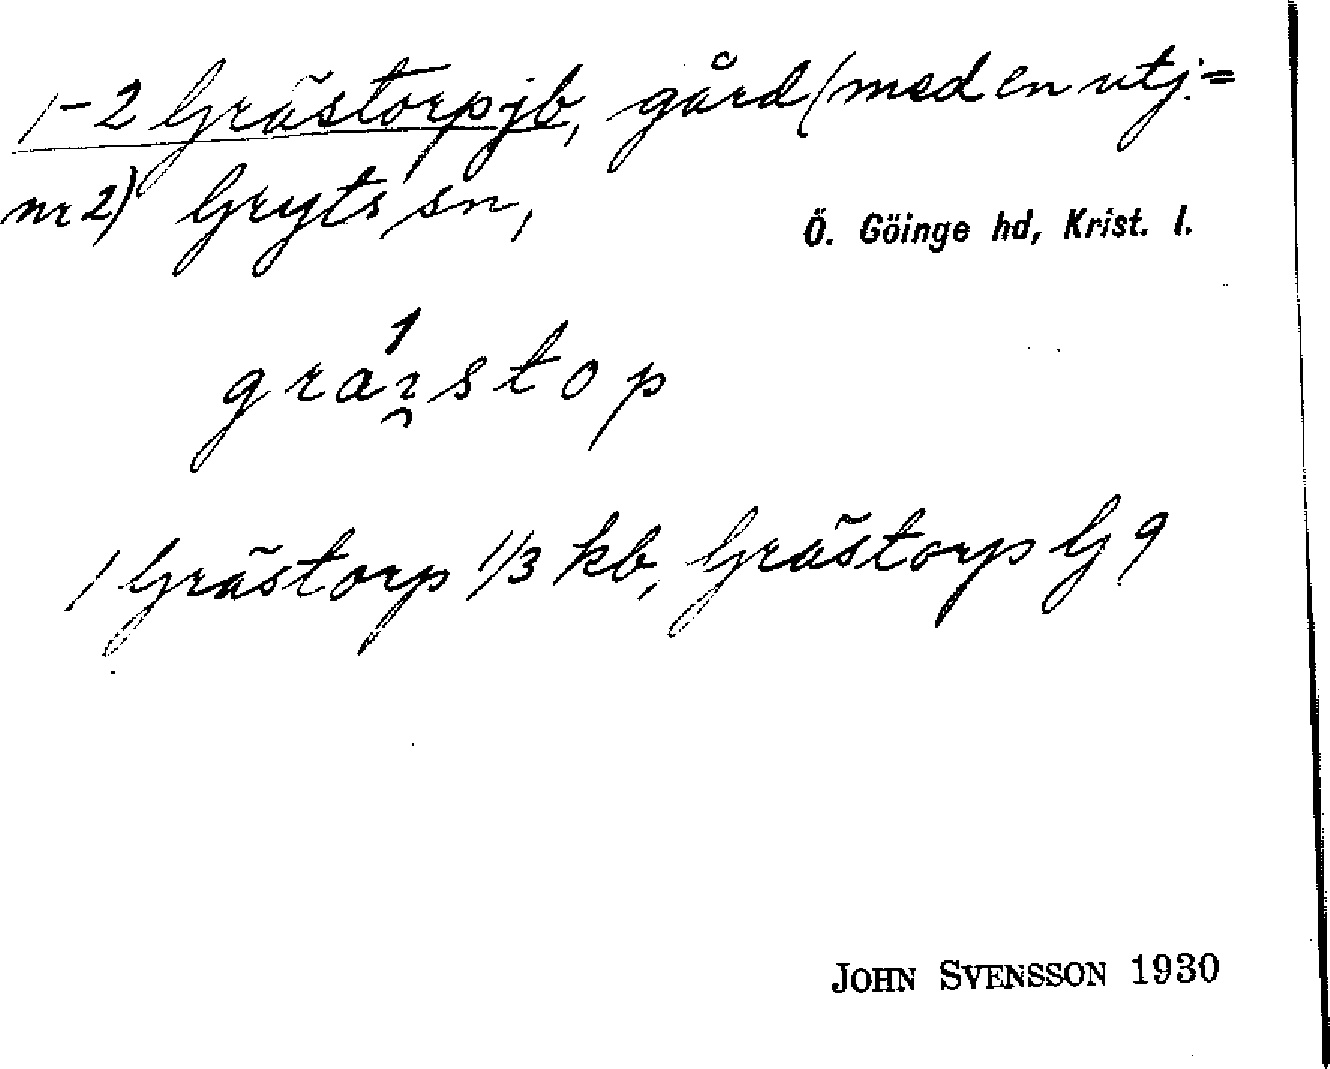 1-2 Grästorp jb, gård (med en utj.=
nr 2) Gryts sn,
Ö. Göinge hd, Krist. l.
1 Grästorp 1/3 kb, Grästorp G 9
JOHN SVENSSON 1930